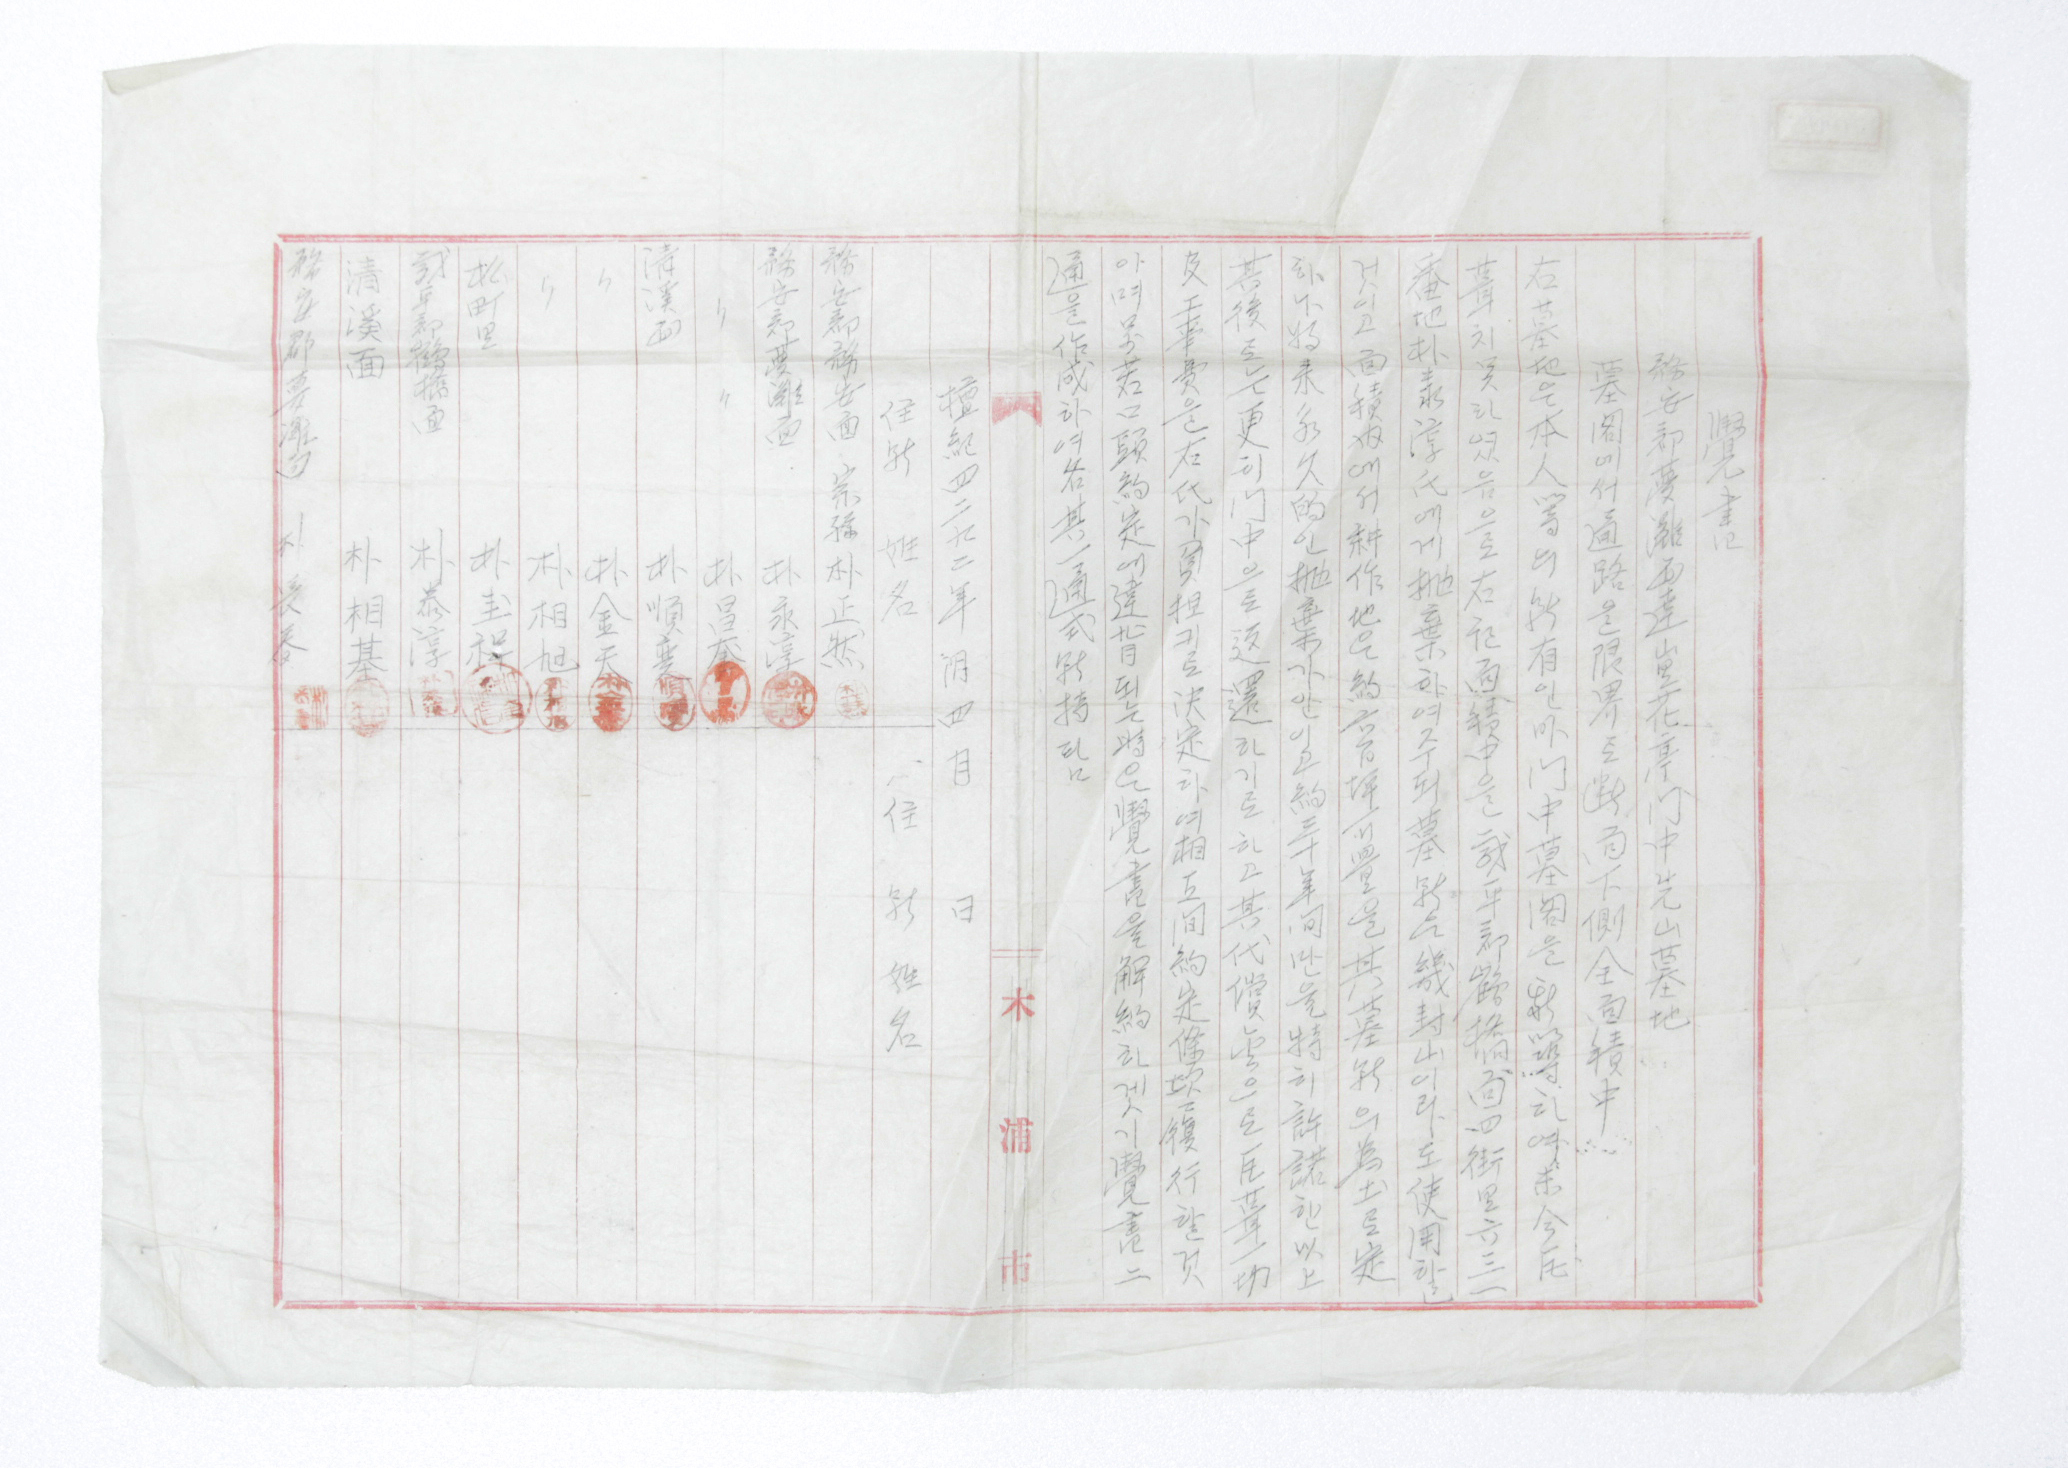 覺書記
務安郡夢灘面達山里花亭門中先山墓地
墓閣에서 通路을 限界로 断 面下側全面積中
右墓地은 本人等의 所有인바 門中墓閣을 新築하여 未今压
葬치 못하엿음으로 右記面積中을 咸平郡鶴橋面四街里六三一
番地 朴泰淳氏에게 抛棄하여 주되 墓所는 幾封山이라도 使用할
것이고 面積内에서 耕作地은 約 百坪 을 其墓所의 爲土로 定
하나 永久的인 抛棄가 안이고 約三十年間만을 特히 許諾한 以上
其後로는 更히 门中으로 返還하기로 하고 其代償 으로 压葬一切
及工事費을 右氏가 負担키로 決定하여 相互間約定條項履行할것
이며 万若 口頭約定에 違背되는 時은 覺書을 解約하겟기 覺書二
通을 作成하여 各其一通式 所持함
檀紀四二九二年 阴四月 日
住所 姓名 住所 姓名
務安郡務安面 宗孫 朴正然
務安郡夢灘面 朴永淳
〃 〃 朴昌奎
清溪面 朴順
〃 朴金天
〃 朴相旭
松町里 朴圭
咸平郡鶴橋面 朴泰淳
清溪面 朴相基
務安郡夢灘面 朴長春
木浦市